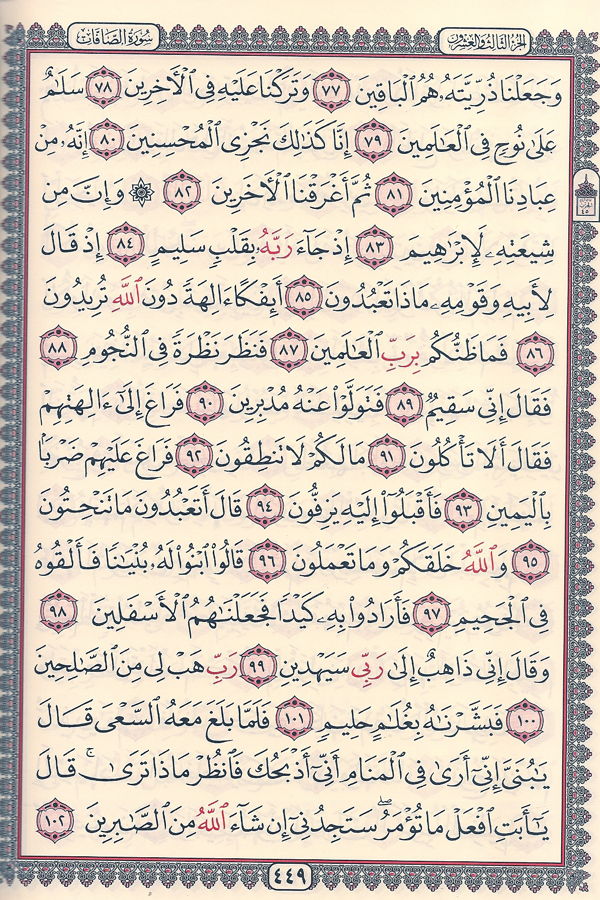 سورة الصافات
الجزء الثالث والعشرون
وَجَعَلْنَا ذُرِّيَّتَهُۥ هُمُ ٱلْبَاقِينَ ٧٧ وَتَرَكْنَا عَلَيْهِ فِى ٱلْأَخِرِينَ ٧٨ سَلَٰمٌ
عَلَىٰ نُوحٍ فِى ٱلْعَٰلَمِينَ ٧٩ إِنَّا كَذَٰلِكَ نَجْزِى ٱلْمُحْسِنِينَ ٨٠ إِنَّهُۥ مِنْ
عِبَادِنَا ٱلْمُؤْمِنِينَ ٨١ ثُمَّ أَغْرَقْنَا ٱلْأَخَرِينَ ٨٢ ۞ وَإِنَّ مِن
شِيعَتِهِۦ لَإِبْرَٰهِيمَ ٨٣ إِذْ جَآءَ رَبَّهُۥ بِقَلْبٍ سَلِيمٍ ٨٤ إِذْ قَالَ
لِأَبِيهِ وَقَوْمِهِۦ مَاذَا تَعْبُدُونَ ٨٥ أَئِفْكًا ءَالِهَةً دُونَ ٱللَّهِ تُرِيدُونَ
٨٦ فَمَا ظَنُّكُم بِرَبِّ ٱلْعَٰلَمِينَ ٨٧ فَنَظَرَ نَظْرَةً فِى ٱلنُّجُومِ ٨٨
فَقَالَ إِنِّى سَقِيمٌ ٨٩ فَتَوَلَّوْا۟ عَنْهُ مُدْبِرِينَ ٩٠ فَرَاغَ إِلَىٰٓ ءَالِهَتِهِمْ
فَقَالَ أَلَا تَأْكُلُونَ ٩١ مَا لَكُمْ لَا تَنطِقُونَ ٩٢ فَرَاغَ عَلَيْهِمْ ضَرْبًۢا
بِٱلْيَمِينِ ٩٣ فَأَقْبَلُوٓا۟ إِلَيْهِ يَزِفُّونَ ٩٤ قَالَ أَتَعْبُدُونَ مَا تَنْحِتُونَ
٩٥ وَٱللَّهُ خَلَقَكُمْ وَمَا تَعْمَلُونَ ٩٦ قَالُوا۟ ٱبْنُوا۟ لَهُۥ بُنْيَٰنًا فَأَلْقُوهُ
فِى ٱلْجَحِيمِ ٩٧ فَأَرَادُوا۟ بِهِۦ كَيْدًا فَجَعَلْنَٰهُمُ ٱلْأَسْفَلِينَ ٩٨
وَقَالَ إِنِّى ذَاهِبٌ إِلَىٰ رَبِّى سَيَهْدِينِ ٩٩ رَبِّ هَبْ لِى مِنَ ٱلصَّٰلِحِينَ
١٠٠ فَبَشَّرْنَٰهُ بِغُلَٰمٍ حَلِيمٍ ١٠١ فَلَمَّا بَلَغَ مَعَهُ ٱلسَّعْىَ قَالَ
يَٰبُنَىَّ إِنِّىٓ أَرَىٰ فِى ٱلْمَنَامِ أَنِّىٓ أَذْبَحُكَ فَٱنظُرْ مَاذَا تَرَىٰ ۚ قَالَ
يَٰٓأَبَتِ ٱفْعَلْ مَا تُؤْمَرُ ۖ سَتَجِدُنِىٓ إِن شَآءَ ٱللَّهُ مِنَ ٱلصَّٰبِرِينَ ١٠٢
٤٤٩